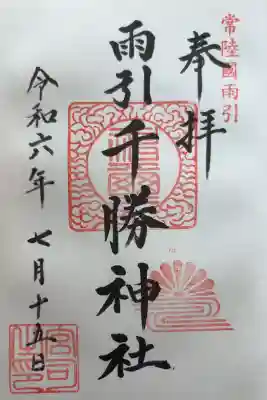 常陸國雨引
奉拝
雨引千勝神社
令和六年 七月十五日